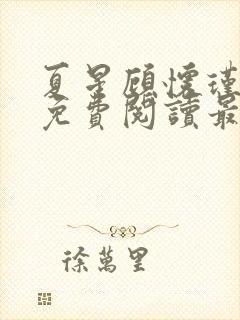 夏星顧懷瑾
免費閱讀最
徐萬里